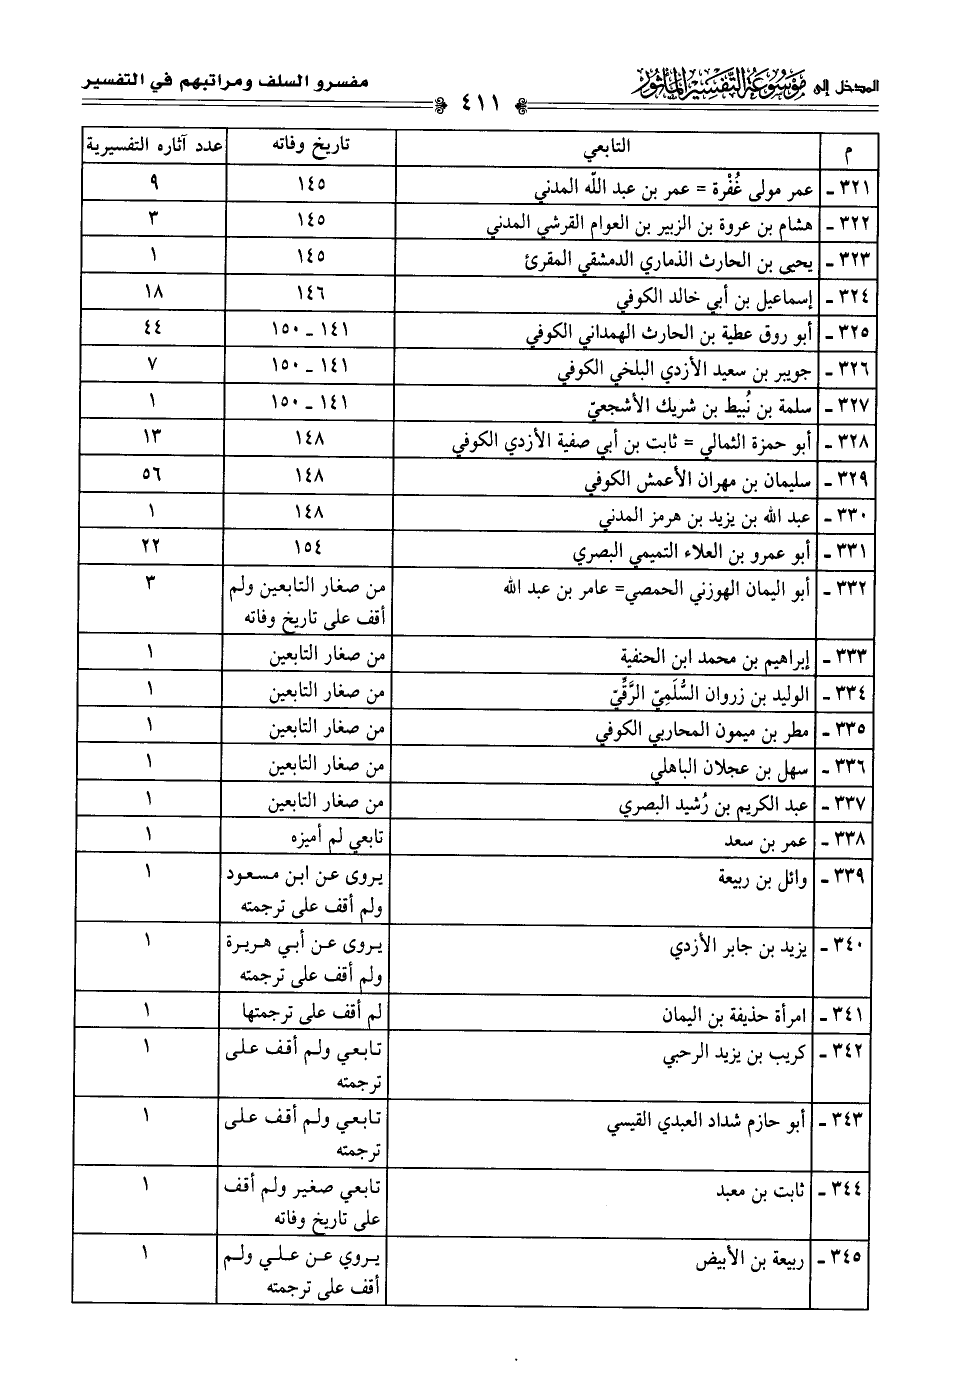 المدخل إلى موسوعة التفسير المأثور مفسرو السلف ومراتبهم في التفسير
٤١١
م التابعي تاريخ وفاته عدد آثاره التفسيرية
٣٢١ - عمر مولى غُفْرة = عمر بن عبد اللّه المدني ١٤٥ ٩
٣٢٢ - هشام بن عروة بن الزبير بن العوام القرشي المدني ١٤٥ ٣
٣٢٣ - يحيى بن الحارث الذماري الدمشقي المقرئ ١٤٥ ١
٣٢٤ - إسماعيل بن أبي خالد الكوفي ١٤٦ ١٨
٣٢٥ - أبو روق عطية بن الحارث الهمداني الكوفي ١٤١ - ١٥٠ ٤٤
٣٢٦ - جويبر بن سعيد الأزدي البلخي الكوفي ١٤١ - ١٥٠ ٧
٣٢٧ - سلمة بن نُبيط بن شريك الأشجعيّ ١٤١ - ١٥٠ ١
٣٢٨ - أبو حمزة الثمالي = ثابت بن أبي صفية الأزدي الكوفي ١٤٨ ١٣
٣٢٩ - سليمان بن مهران الأعمش الكوفي ١٤٨ ٥٦
٣٣٠ - عبد الله بن يزيد بن هرمز المدني ١٤٨ ١
٣٣١ - أبو عمرو بن العلاء التميمي البصري ١٥٤ ٢٢
٣٣٢ - أبو اليمان الهوزني الحمصي= عامر بن عبد الله من صغار التابعين ولم ٣
أقف على تاريخ وفاته
٣٣٣ - إبراهيم بن محمد ابن الحنفية من صغار التابعين ١
٣٣٤ - الوليد بن زروان السُّلَمِيّ الرَّقِّيّ من صغار التابعين ١
٣٣٥ - مطر بن ميمون المحاربي الكوفي من صغار التابعين ١
٣٣٦ - سهل بن عجلان الباهلي من صغار التابعين ١
٣٣٧ - عبد الكريم بن رُشيد البصري من صغار التابعين ١
٣٣٨ - عمر بن سعد تابعي لم أميزه ١
٣٣٩ - وائل بن ربيعة يروى عن ابن مسعود ١
ولم أقف على ترجمته
٣٤٠ - يزيد بن جابر الأزدي يروى عن أبي هريرة ١
ولم أقف على ترجمته
٣٤١ - امرأة حذيفة بن اليمان لم أقف على ترجمتها ١
٣٤٢ - كريب بن يزيد الرحبي تابعي ولم أقف على ١
ترجمته
٣٤٣ - أبو حازم شداد العبدي القيسي تابعي ولم أقف على ١
ترجمته
٣٤٤ - ثابت بن معبد تابعي صغير ولم أقف ١
على تاريخ وفاته
٣٤٥ - ربيعة بن الأبيض يروي عن علي ولم ١
أقف على ترجمته